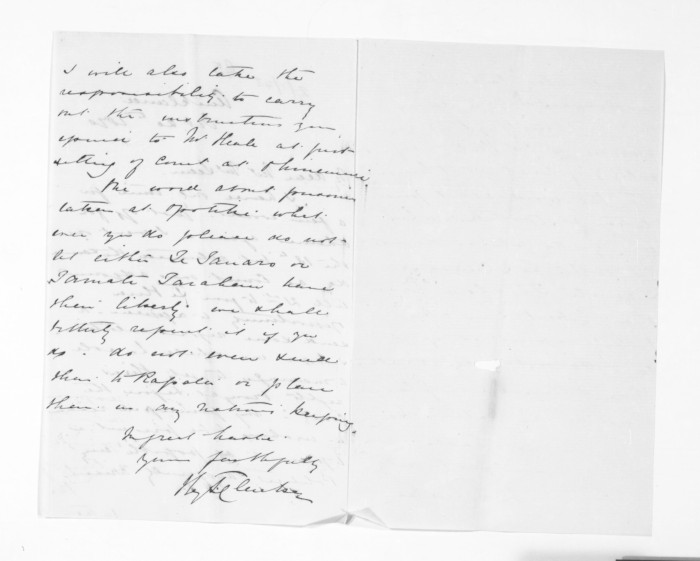 I will also take the
responsibility to carry
out the instructions you
to Mr Heale at first
sitting of Court at Ohinemuri.
One word about prisoners
taken at Opotiki what
ever you do please do not
let either Te or
Tamati have
their liberty we shall
bitterly repent it if you
do. do not even send
them to Kapata or place
them in any natives keeping.
In great haste
Yours faithfully
Hy T Clarke